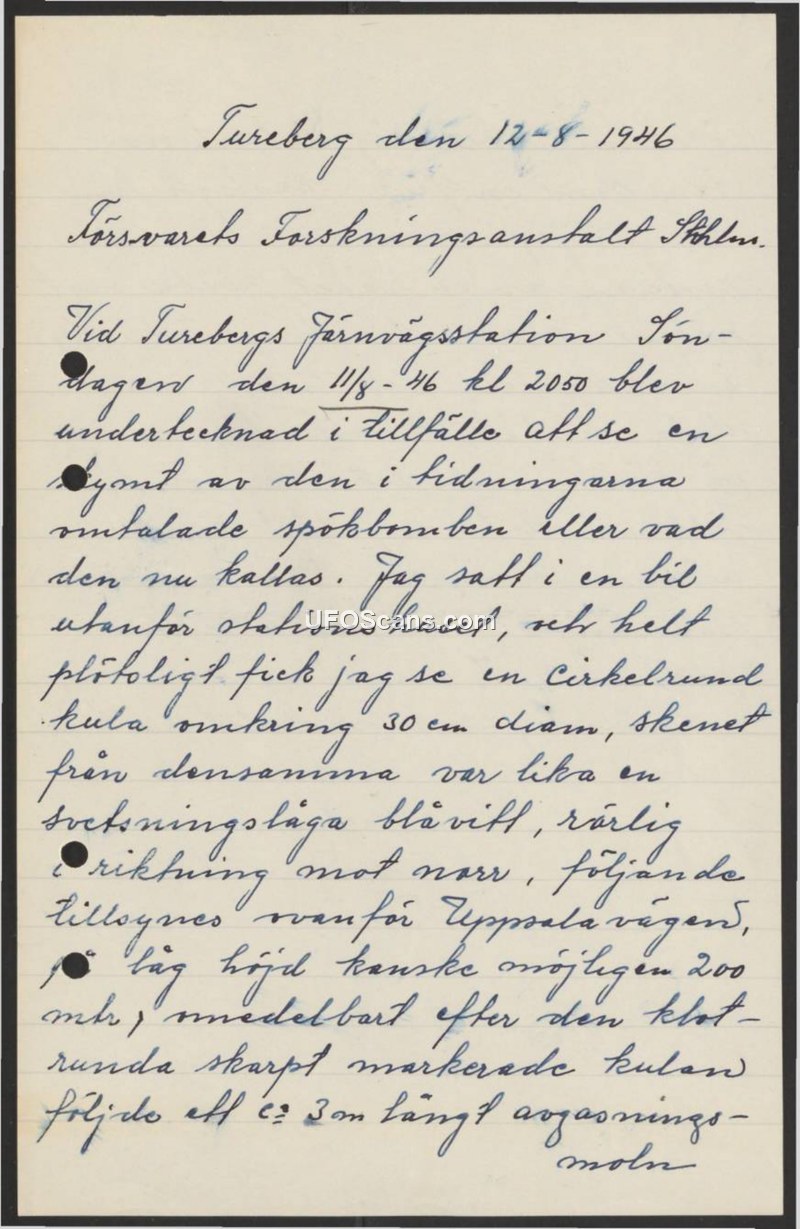 Tureberg den 12-8-1946
Försvarets Forskningsanstalt Sthlm.
Vid Turebergs Järnvägsstation Sön-
dagen den 11/8-46 kl 2050 blev
undertecknad i tillfälle att se en
skymt av den i tidningarna
omtalade spökbomben eller vad
den nu kallas. Jag satt i en bil
utanför stationshuset, och helt
plötsligt fick jag se en Cirkelrund
kula omkring 30 cm diam, skenet
från densamma var lika en
svetsningslåga blåvitt, rörlig
i riktning mot norr, följande
tillsynes ovanför Uppsalavägen,
på låg höjd kanske möjligen 200
mtr, omedelbart efter den klot-
runda skarpt markerade kulan
följde ett ca 3 m långt avgasnings-
moln
UFOScans.com